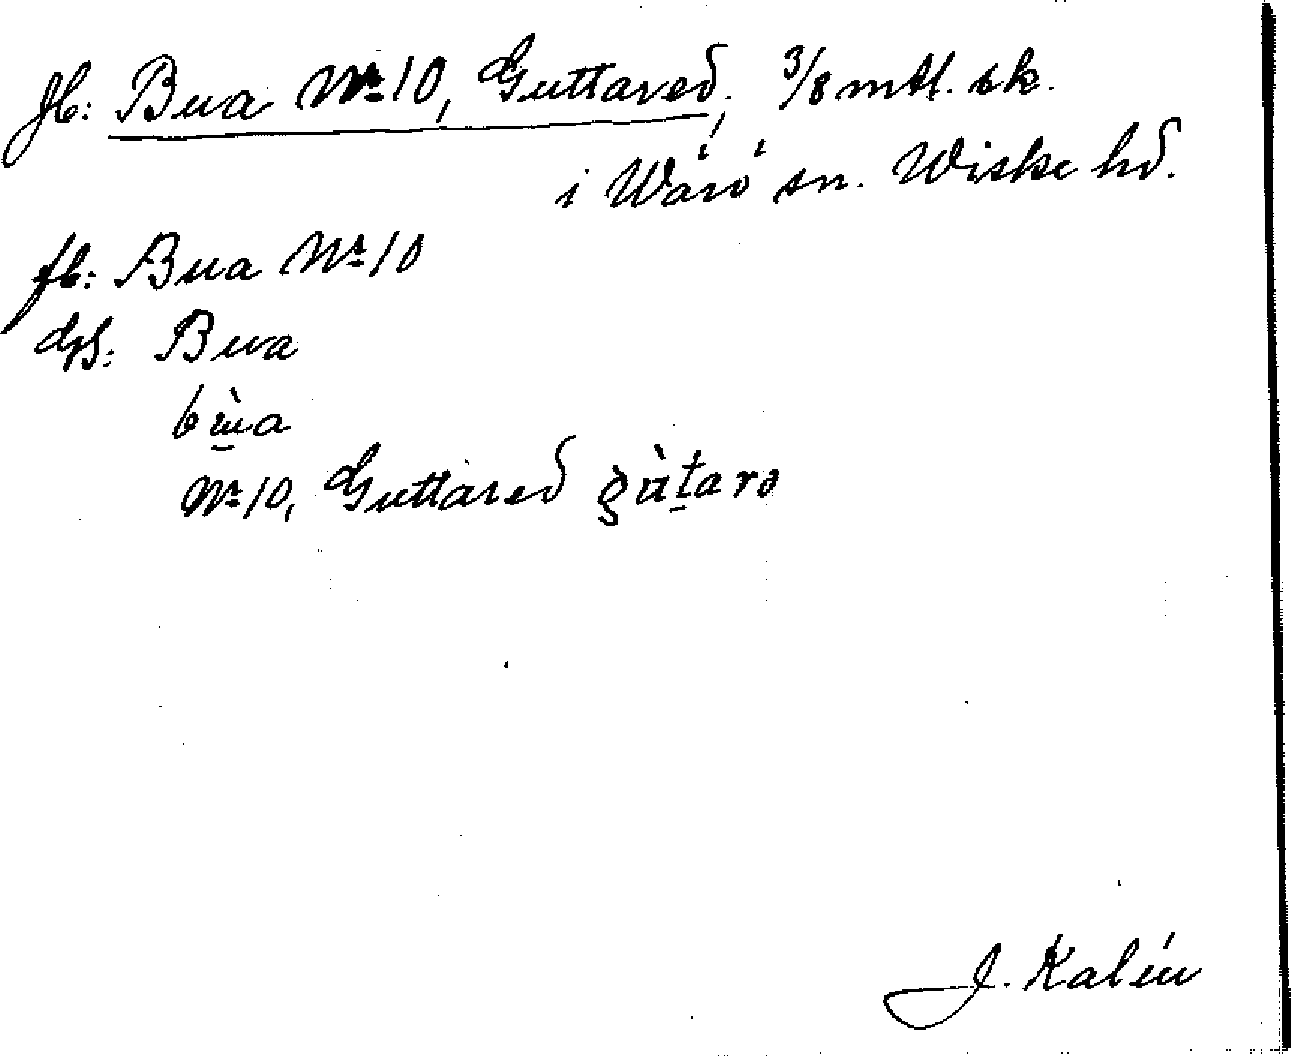 jb: Bua № 10, Guttared, 3/8 mtl. sk.
i Wärö sn. Wiske hd.
fb: Bua № 10
Bua
bùa
№ 10, Guttared gùtarə
J. Kalén